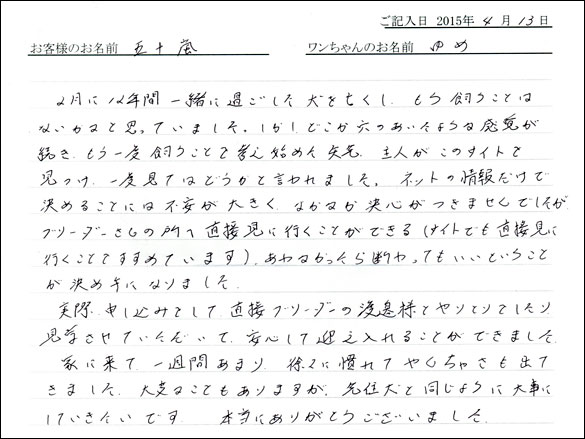 ご記入日 2015年 4 月 13 日
お客様のお名前 五十嵐 ワンちゃんのお名前 ゆめ
2月に12年間一緒に過ごした犬を亡くし、もう飼うことは
ないかなと思っていました。しかしどこか穴のあいたような感覚が
続き、もう一度飼うことを考え始めた矢先、主人がこのサイトを
見つけ、一度見てはどうかと言われました。ネットの情報だけで
決めることには不安が大きく、なかなか決心がつきませんでしたが
ブリーダーさんの所へ直接見に行くことができる(サイトでも直接見に
行くことをすすめています)、あわなかったら断わってもいいということ
が決め手になりました。
実際、申し込みをして直接ブリーダーの渡邉様とやりとりしたり
見学させていただいて、安心して迎え入れることができました。
家に来て、一週間あまり、徐々に慣れてやんちゃさも出て
きました。大変なこともありますが、先住犬と同じように大事に
していきたいです。 本当にありがとうございました。